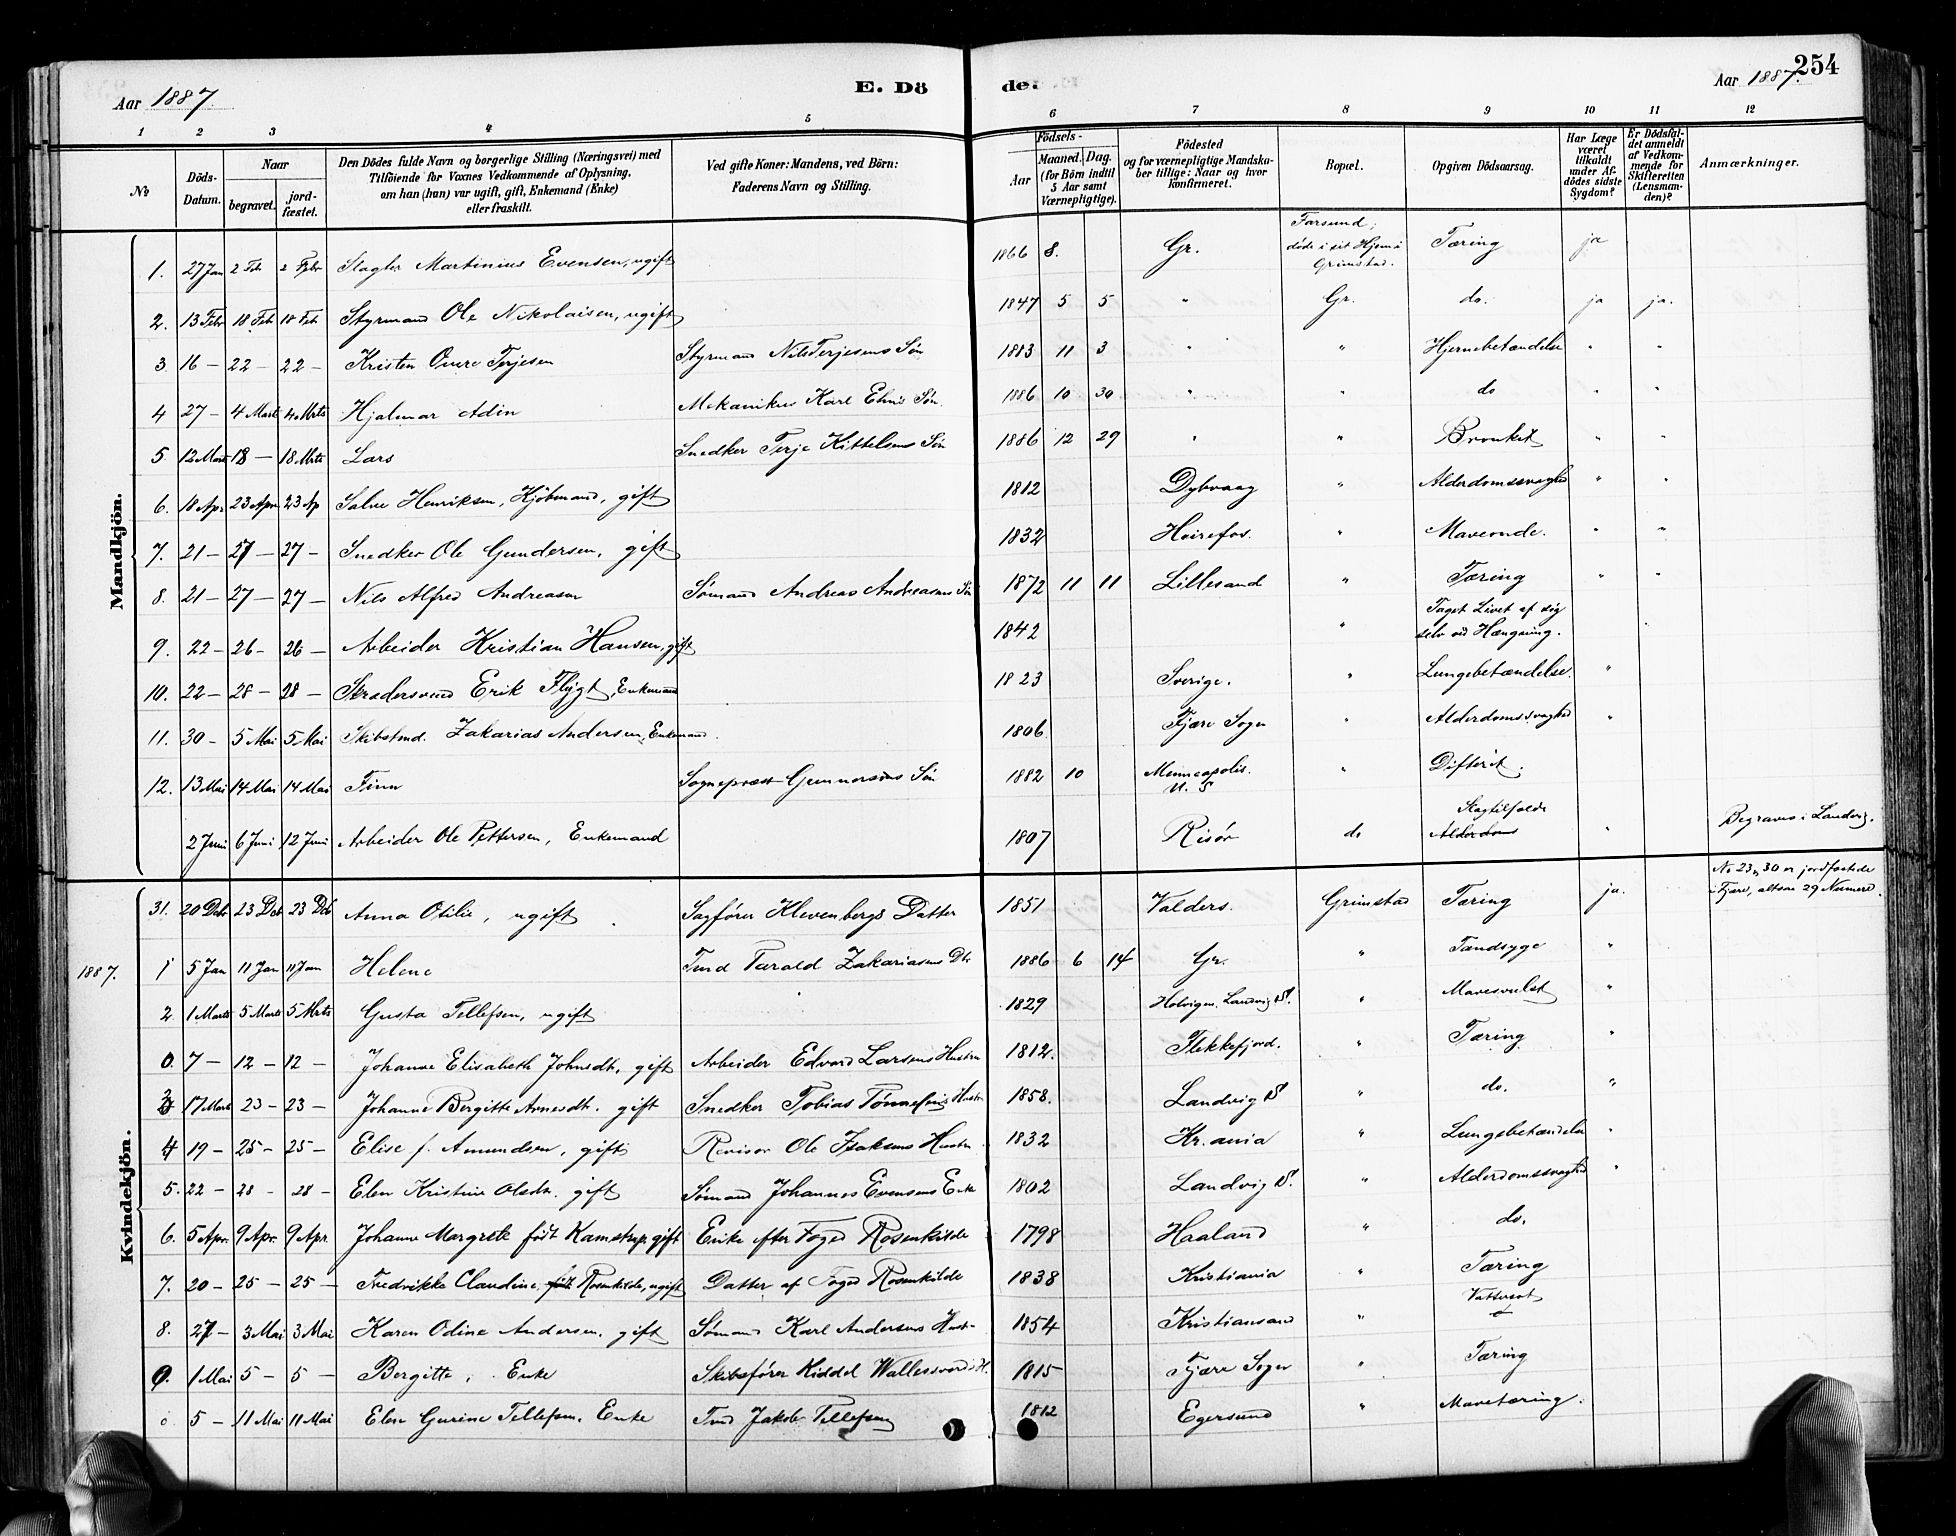 Aar 1887. E. Dö de. Aar 1887. 254
1 2 3 4 5 6 7 8 9 10 11 12
No
Döds-Datum.
Naar
begravet.
jordfæstet.
Den Dödes fulde Navn og borgerlige Stilling (Næringsvei) med Tilföiende for Voxnes Vedkommende af Oplysning, om han (hun) var ugift, gift, Enkemand (Enke) eller fraskilt.
Ved gifte Koner: Mandens, ved Börn: Faderens Navn og Stilling.
Födsels-
Aar
Maaned. Dag.
(for Börn indtil 5 Aar samt Værnepligtige).
Födested og for værnepligtige Mandskaber tillige: Naar og hvor konfirmeret.
Bopæl.
Opgiven Dödsaarsag.
Har Læge været tilkaldt under Afdödes sidste Sygdom?
Er Dödsfaldet anmeldt af Vedkommende for Skifteretten (Lensmanden)?
Anmærkninger.
Mandkjön.
1. 27 Jan 2 Feb 2 Febr Slagter Martinius Evensen, ugift 1866 8. Gr. Farsund; døde i sit Hjem i Grimstad. Tæring ja
2. 13 Febr 18 Feb 18 Feb Styrmand Ole Nikolaisen, ugift 1847 5 5 " Gr. do. ja ja.
3. 16 — 22 — 22 — Kristen Omre Terjesen Styrmand Nils Terjesens Søn 1883 11 3 " " Hjernebetændelse " "
4 27 — 4 Marts 4. Mrts Hjalmar Adin Mekanikus Karl Søn. 1886 10 30 " " do " "
5. 12 Marts 18 — 18 Mrts Lars Snedker Terje Kittelsens Søn 1886 12 29 " " Bronkit " "
6. 18 Apr. 23 Apr. 23 Ap Salve Henriksen, Kjøbmand, gift 1812 Dybvaag " Alderdomssvaghed " "
7. 21 — 27 — 27 — Snedker Ole Gundersen, gift 1832 Hoirefos. " Maveonde. " "
8. 21 — 27 — 27 — Nils Alfred Andreasen Sømand Andreas Andreasens Søn 1872 11 11 Lillesand " Tæring " "
9. 22 — 26 — 26 — Arbeider Kristian Hansen, gift 1842 " Taget Livet af sig selv ved Hængning.
10. 22 — 28 — 28 — Skrædersvend Erik Flygt, Enkemand 1823 Sverige. " Lungebetændelse. "
11. 30 — 5 Mai 5 Mai Skibstmd. Zakarias Andersen, Enkemand. 1806. Fjære Sogn " Alderdomssvaghed "
12. 13 Mai 14 Mai 14 Mai Finn Sogneprest Gunnersons Søn 1882 10 Minneapolis. U. S " Difterit.
2 Juni 6 Juni 12 Juni Arbeider Ole Pettersen, Enkemand 1807 Risør do Slagtilfælde Alderdoms " Begraves i Landvig.
Kvindekjön.
31. 20 Dcbr 23 Dcb 23 Dcb Anna Otilie, ugift Sagfører Klevenbergs Datter 1851 Valders. Grimstad Tæring ja. No 23 og 30 er jordfæstede i Fjære, altsaa 29 Numere.
1887. 1 5 Jan 11 Jan 11 Jan Helene Tmd Tarald Zakariasens Dtr 1886 6 14 Gr. " Tandsyge "
2 1 Marts 5 Marts 5 Mrts Gusta Tellefsen, ugift 1829 Holvigen. Landvig S. " Mavesvulst "
0. 7 — 12 — 12 — Johanne Elisabeth Johnsdtr, gift Arbeider Edvard Larsens Hustru 1812. Flekkefjord. " Tæring "
3 17 Marts 23 — 23 — Johanne Bergitte Arnesdtr. gift Snedker Tobias Tønnesens Hustru 1858. Landvig S " do. "
4 19 — 25 — 25 — Elise f. Amundsen, gift Revisor Ole Isaksens Hustru 1832 Kr.ania " Lungebetændelse "
5. 22 — 28 — 28 — Elen Kristine Olsdtr. gift Sømand Johannes Evensens Enke 1802 Landvig S. " Alderdomssvaghed "
6. 5 Apr. 9 Apr. 9 Apr. Johanne Margrete født Kamstrup, gift Enke efter Foged Rosenkilde 1798 Haaland " do.
7. 20 — 25 — 25 — Fredrikke Claudine, født Rosenkilde, ugift Datter af Foged Rosenkilde 1838 Kristiania " Tæring
8. 27 — 3 Mai 3 Mai Karen Odine Andersen, gift Sømand Karl Andersens Hustru 1854 Kristiansand " Vattersot
9. 1 Mai 5 — 5 — Bergitte, Enke Skibsfører Kiddel Wallesverd's H. 1815 Fjære Sogn " Tæring
5 — 11 Mai 11 Mai Elen Gurine Tellefsen, Enke Tmd Jakob Tellefsen 1812 Egersund " Mavetæring.